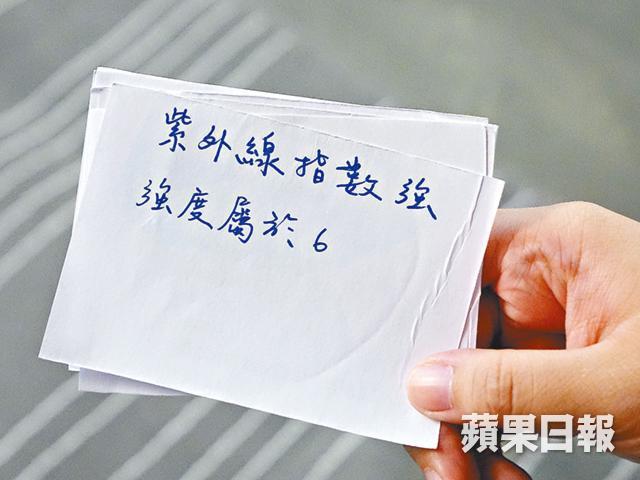 紫外線指數強
強度屬於6
蘋果日報